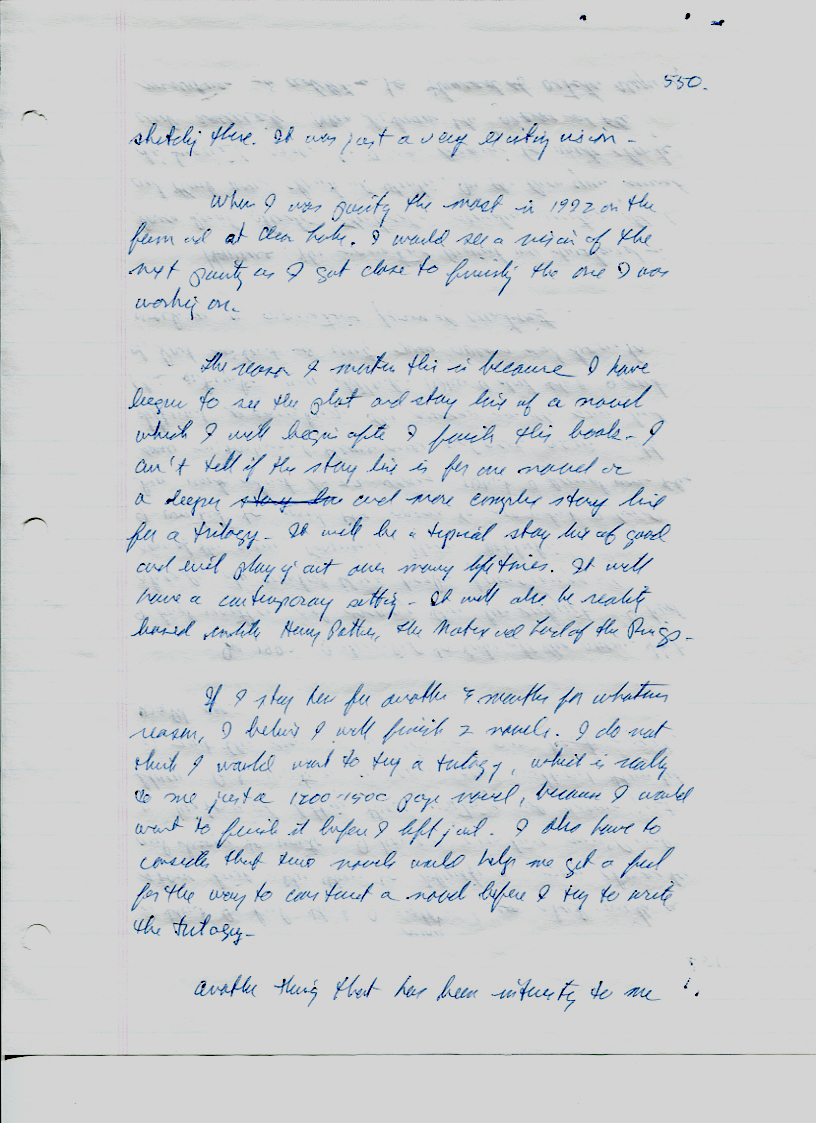 550.
sketchy there. It was just a very exciting vision.
When I was painting the most in 1992 on the
farm and at Clear Lake. I would see a vision of the
next painting as I got close to finishing the one I was
working on.
The reason I mention this is because I have
begun to see the plot and story line of a novel
which I will begin after I finish this book. I
can't tell if the story line is for one novel or
a deeper story line and more complex story line
for a trilogy. It will be a typical story line of good
and evil playing out over many lifetimes. It will
have a contemporary setting. It will also be reality
based unlike Harry Potter, The Matrix and Lord of the Rings.
If I stay here for another months for whatever
reason, I believe I will finish 2 novels. I do not
think I would want to try a trilogy, which is really
to me just a 1200-1500 page novel, because I would
want to finish it before I left jail. I also have to
consider that two novels would help me get a feel
for the way to construct a novel before I try to write
the trilogy.
Another thing that has been interesting to me